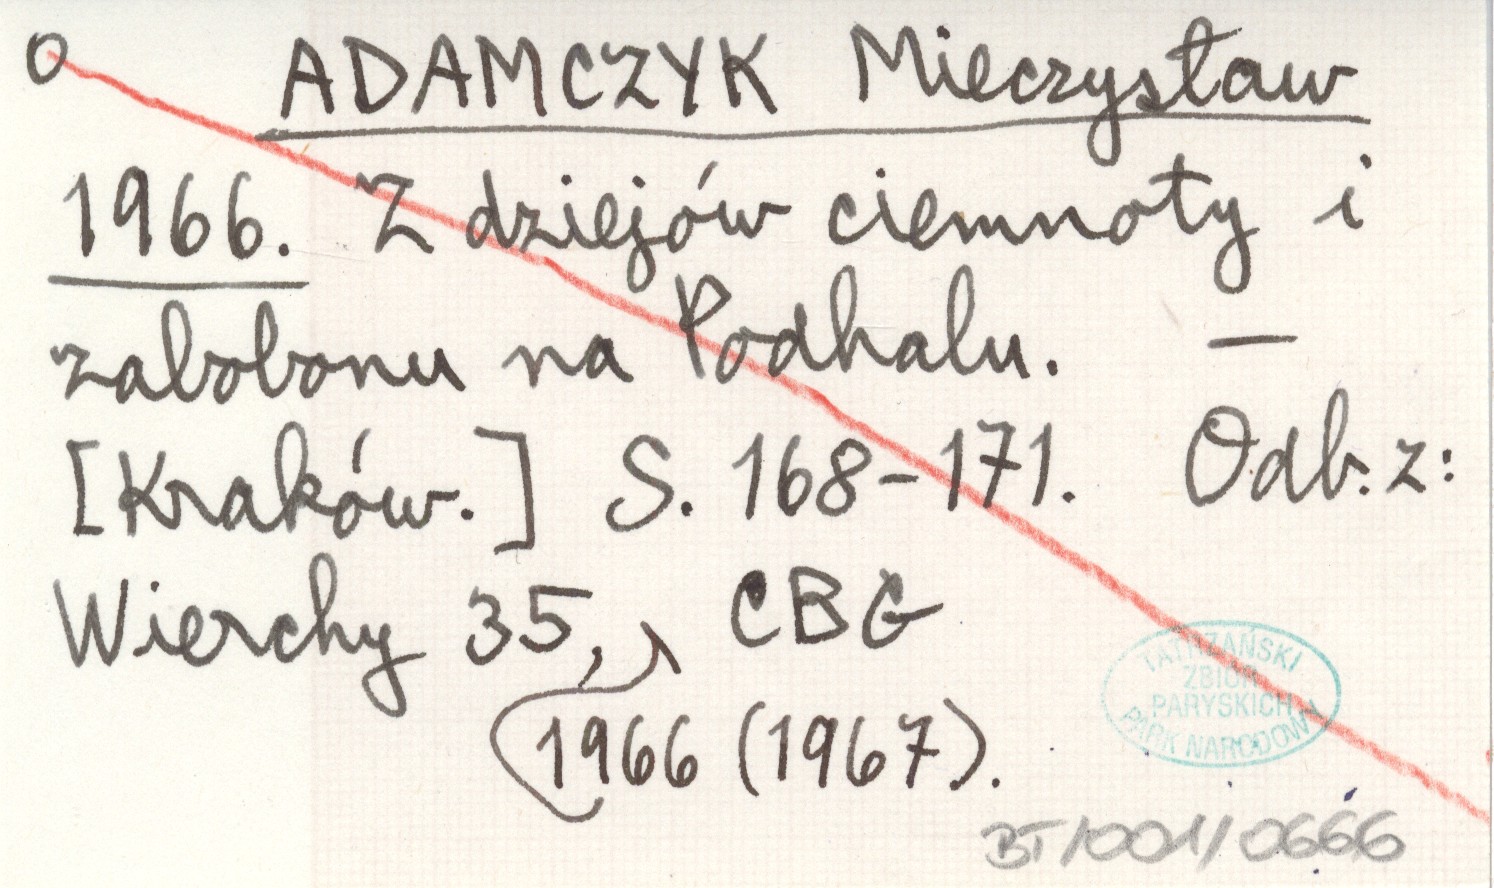 O
ADAMCZYK Mieczysław
1966. Z dziejów ciemnoty i
zabobonu na Podhalu. —
[Kraków.] S. 168-171. Odb. z:
Wierchy 35, CBG
1966 (1967).
TATRZAŃSKI
ZBIÓR
PARYSKICH
PARK NARODOWY
BT/001/0666